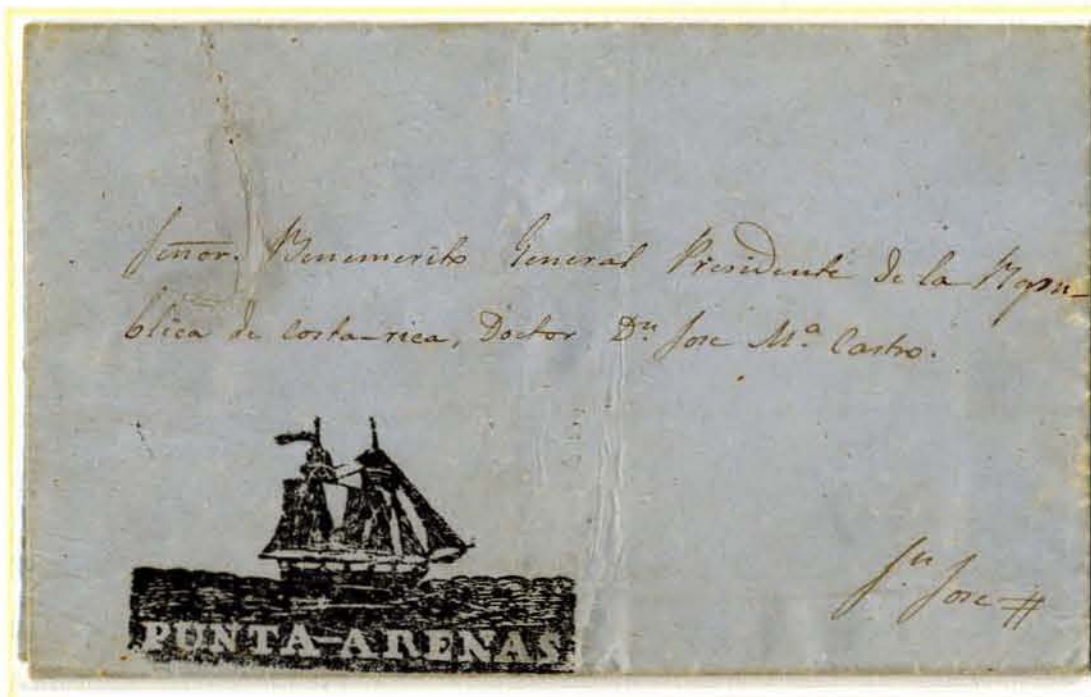 Señor. Benemerito General Presidente de la Repu-
blica de Costa-rica, Doctor Dn Jose Ma. Castro.
PUNTA-ARENAS
Sn Jose #